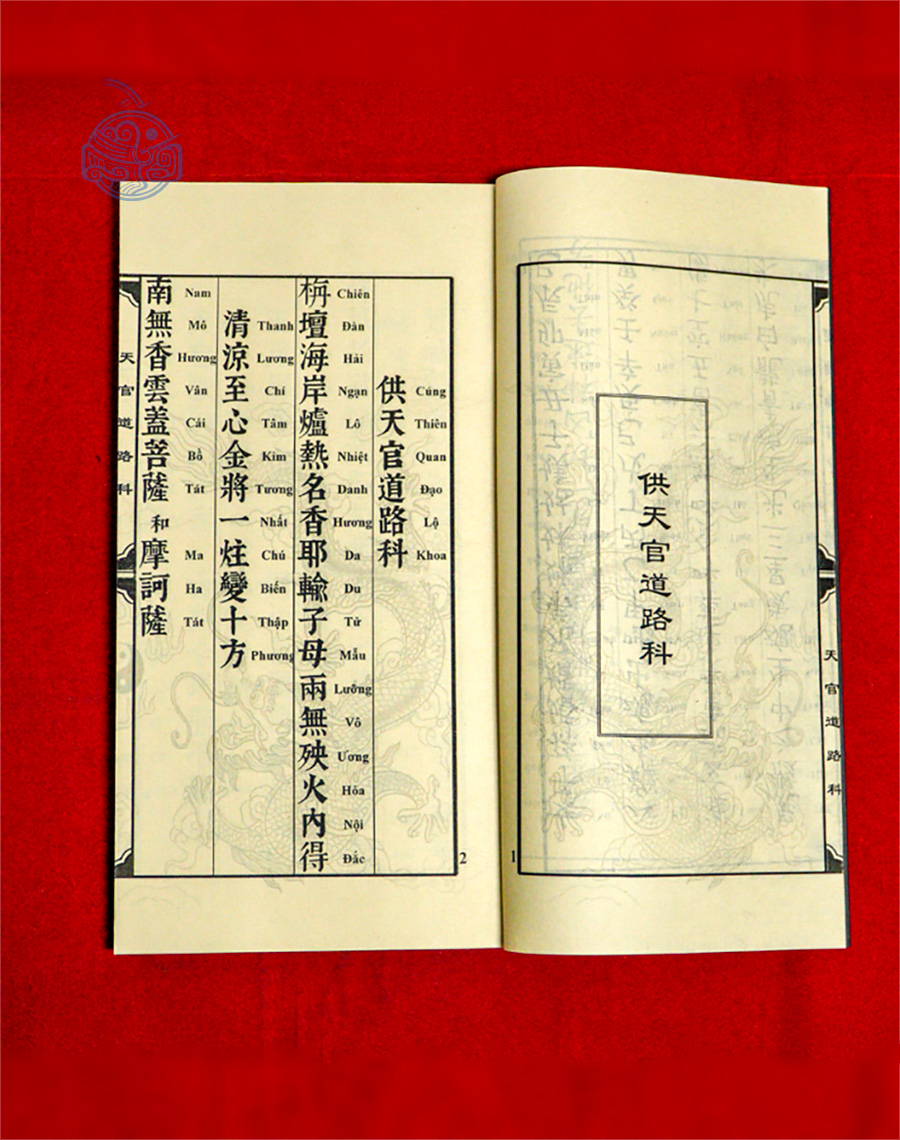 供天官道路科
天官道路科
1
Cúng Thiên Quan Đạo Lộ Khoa
供天官道路科
Chiên Đàn Hải Ngạn Lô Nhiệt Danh Hương Da Du Tử Mẫu Lưỡng Vô Ương Hỏa Nội Đắc
栴壇海岸爐熱名香耶輸子母兩無殃火內得
Thanh Lương Chí Tâm Kim Tương Nhất Chú Biến Thập Phương
清涼至心金將一炷變十方
Nam Mô Hương Vân Cái Bồ Tát Ma Ha Tát
南無香雲蓋菩薩和摩訶薩
天官道路科
2